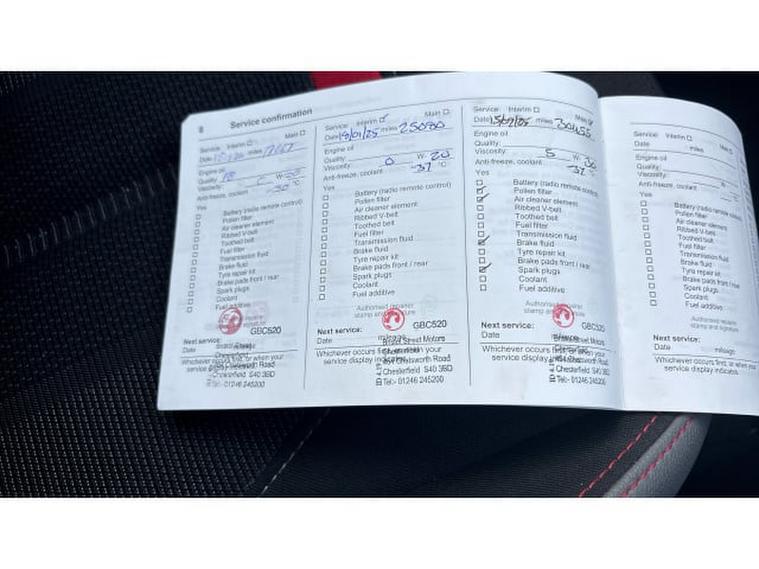 8 Service confirmation
Service: Interim Main
Date miles
Engine oil
Quality:
Viscosity: W-
Anti-freeze, coolant -30 °C
Yes
Battery (radio remote control)
Pollen filter
Air cleaner element
Ribbed V-belt
Toothed belt
Fuel filter
Transmission fluid
Brake fluid
Tyre repair kit
Brake pads front / rear
Spark plugs
Coolant
Fuel additive
GBC520
Next service:
Date
Whichever occurs first, or when your
service display indicates.
Chesterfield S40 3BD
Tel:- 01246 245200
Service: Interim Main
Date 18/01/25 miles 25080
Engine oil
Quality:
Viscosity: 0 W- 20
Anti-freeze, coolant -37 °C
Yes
Battery (radio remote control)
Pollen filter
Air cleaner element
Ribbed V-belt
Toothed belt
Fuel filter
Transmission fluid
Brake fluid
Tyre repair kit
Brake pads front / rear
Spark plugs
Coolant
Fuel additive
Authorised repairer
stamp and signature
GBC520
Next service:
Date mileage
Bristol Street Motors
Whichever occurs first, or when your
service display indicates.
464 Chatsworth Road
Chesterfield S40 3BD
Tel:- 01246 245200
Service: Interim Main
Date miles 30455
Engine oil
Quality:
Viscosity: 5 W- 30
Anti-freeze, coolant -37 °C
Yes
Battery (radio remote control)
Pollen filter
Air cleaner element
Ribbed V-belt
Toothed belt
Fuel filter
Transmission fluid
Brake fluid
Tyre repair kit
Brake pads front / rear
Spark plugs
Coolant
Fuel additive
Authorised repairer
stamp and signature
GBC520
Next service:
Date
Street Motors
Whichever occurs first, or when your
service display indicates.
Chatsworth Road
Chesterfield S40 3BD
Tel:- 01246 245200
Service: Interim
Date miles
Engine oil
Quality:
Viscosity:
Anti-freeze, coolant
Yes
Battery (radio remote
Pollen filter
Air cleaner element
Ribbed V-belt
Toothed belt
Fuel filter
Transmission fluid
Brake fluid
Tyre repair kit
Brake pads front / rear
Spark plugs
Coolant
Fuel additive
Authorised repairer
stamp and signature
Next service:
Date mileage
Whichever occurs first, or when your
service display indicates.